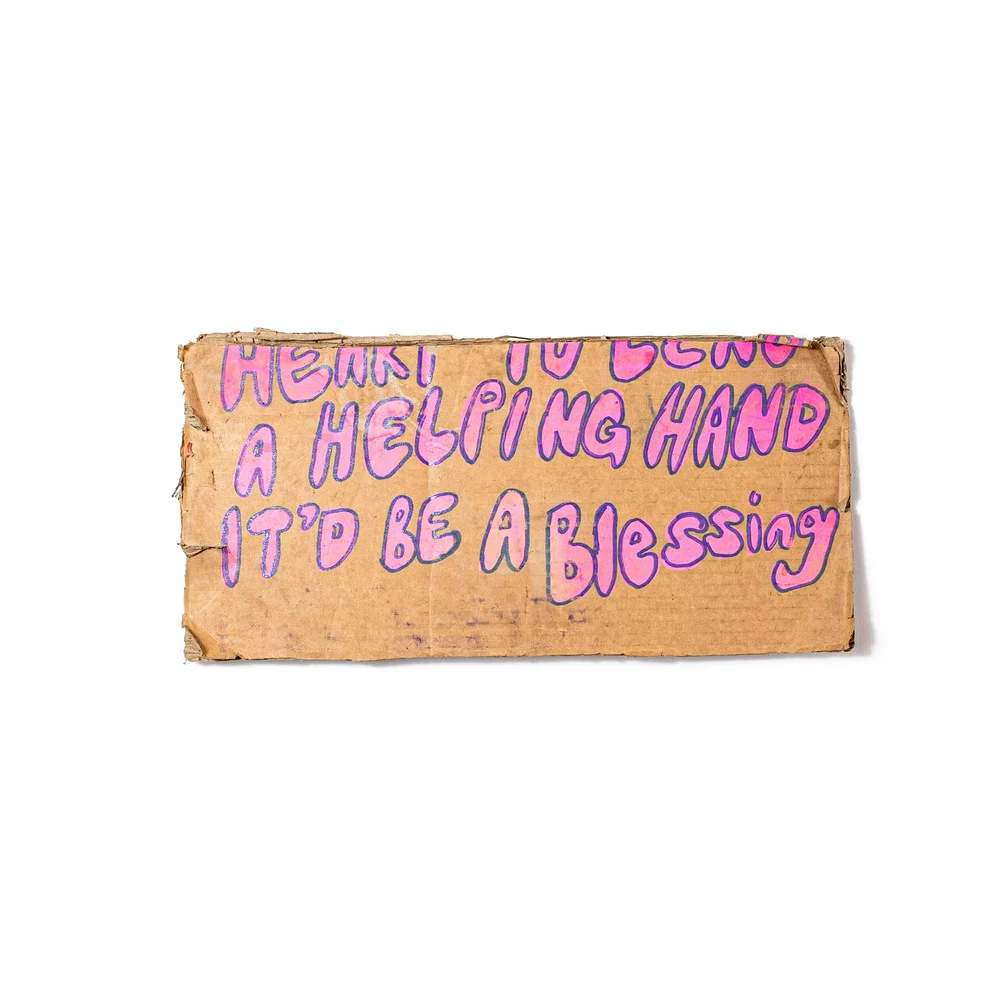 HEART TO LEND
A HELPING HAND
IT'D BE A Blessing